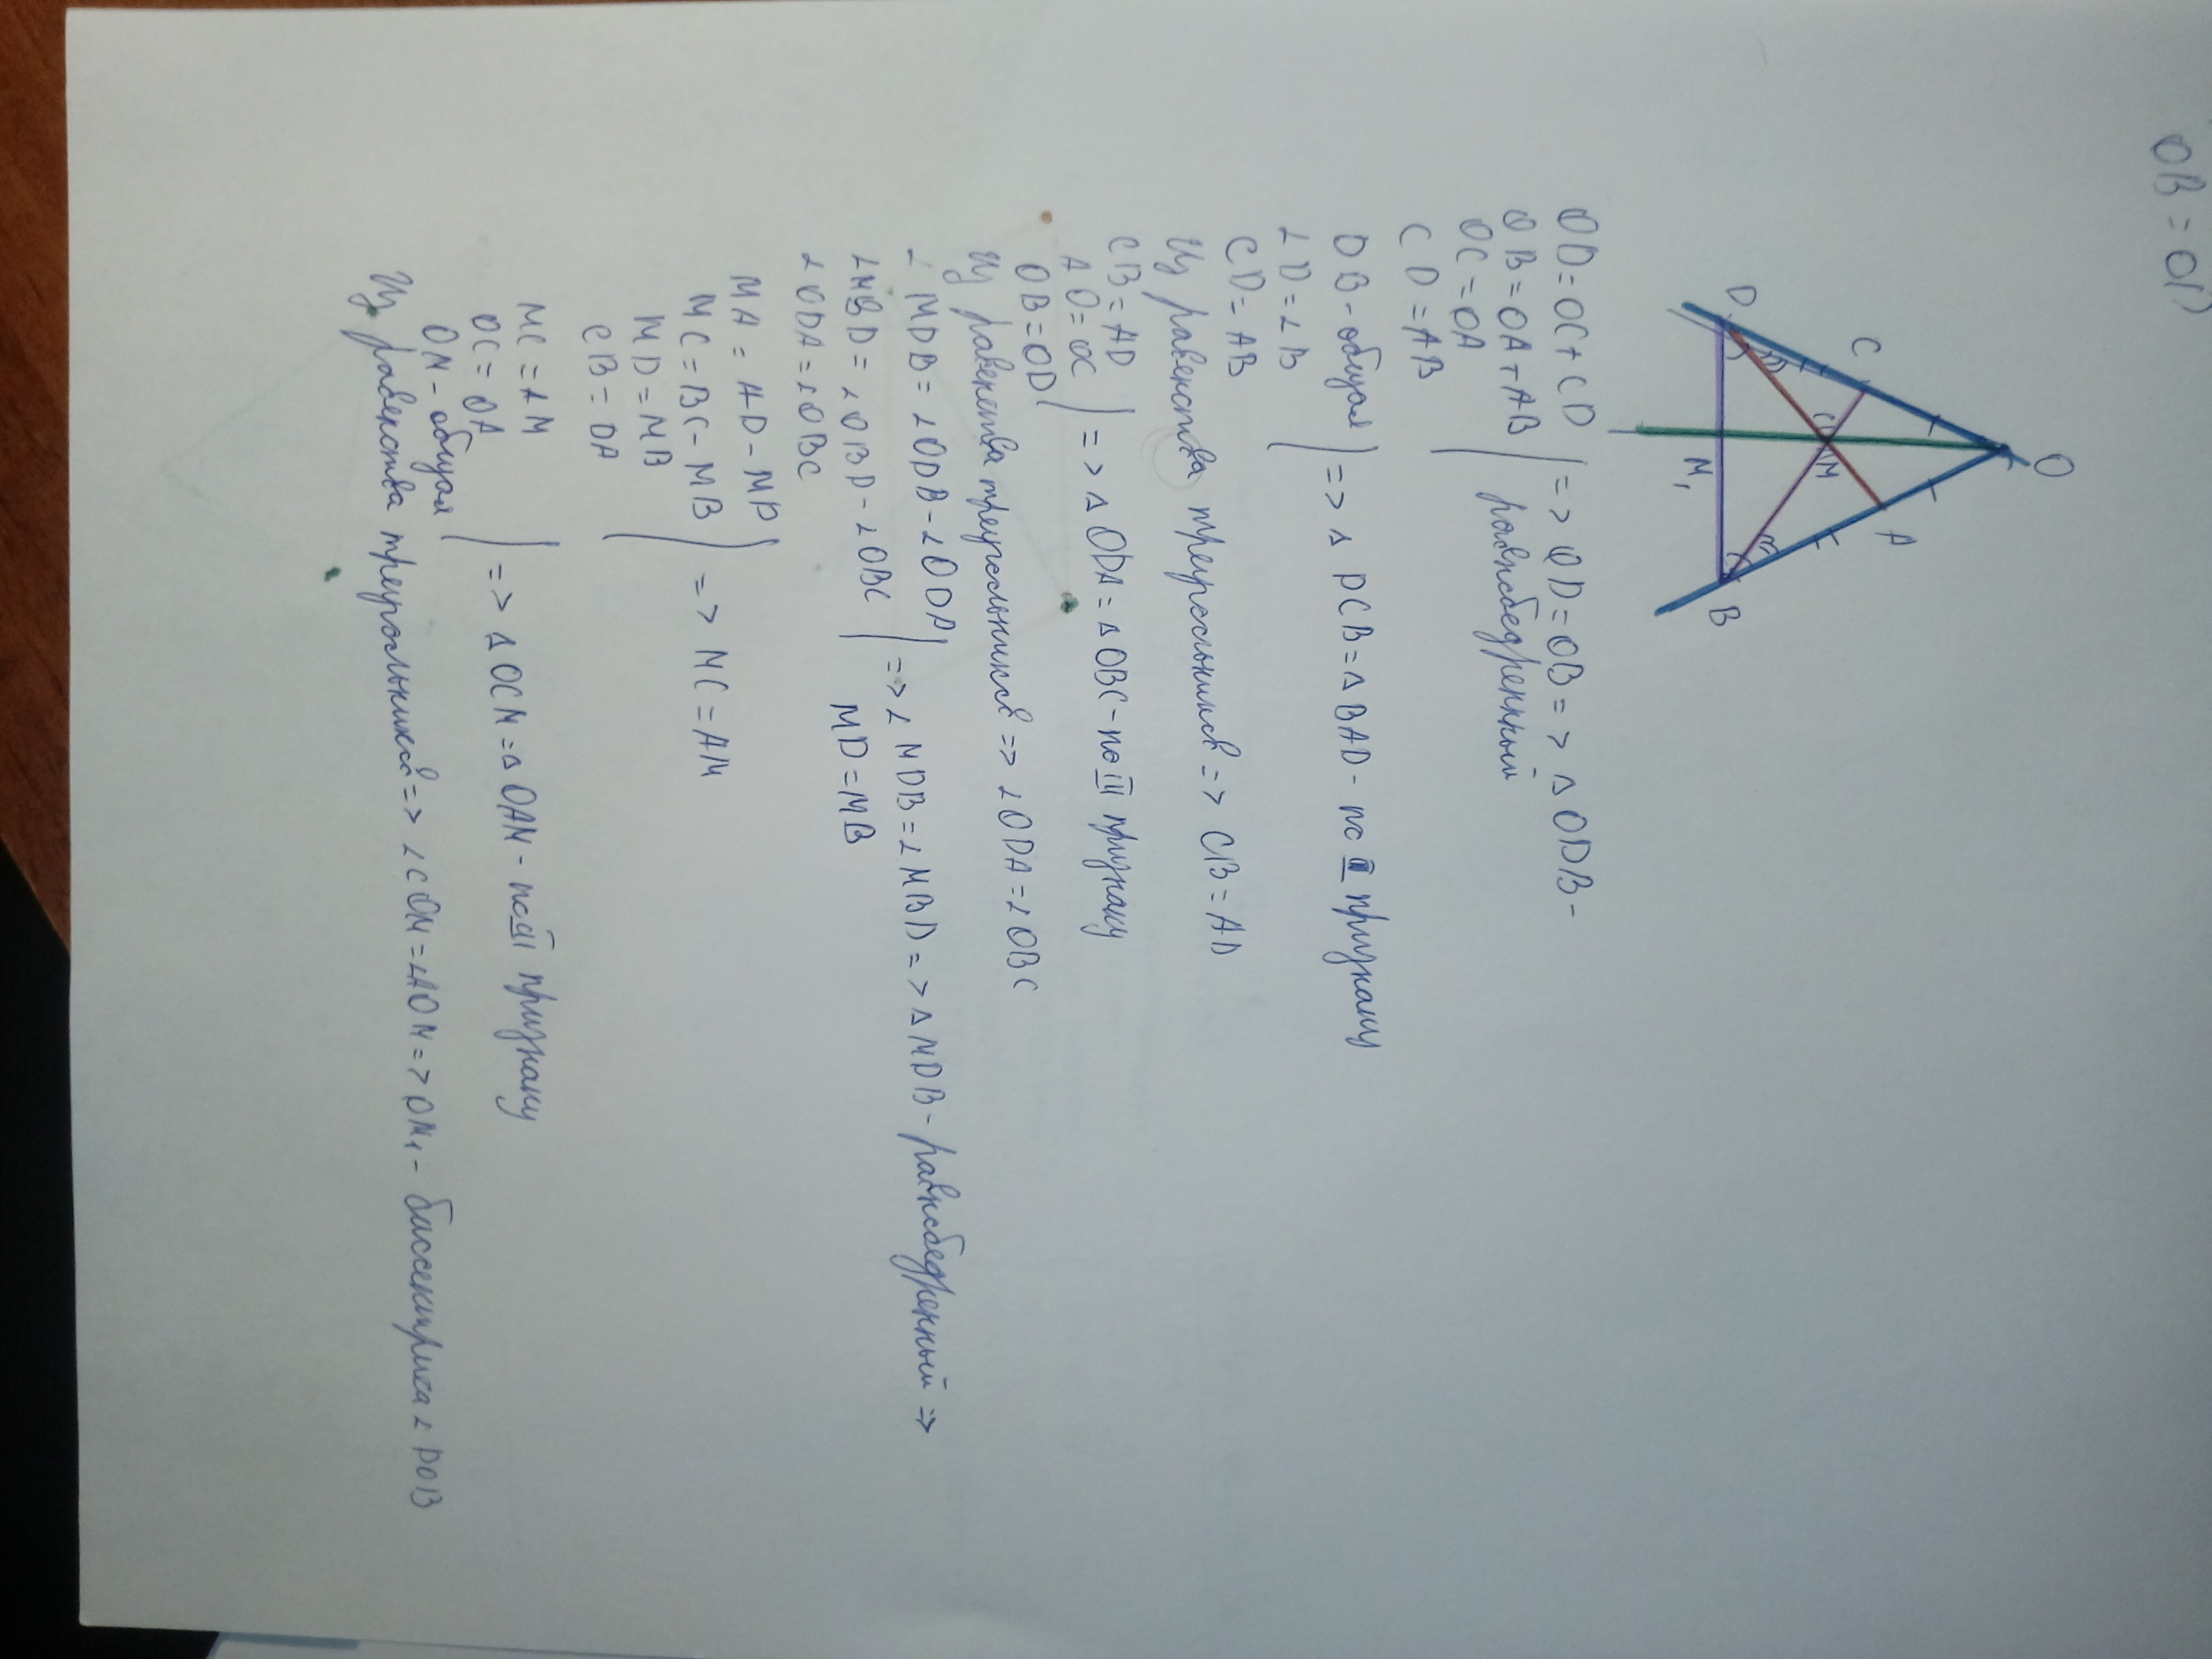 OB = OD
O
C
A
M
D
B
M₁
OD = OC + CD
OB = OA + AB
OC = OA
CD = AB
=> OD = OB => △ ODB -
равнобедренный
DB - общая
∠D = ∠B
CD = AB
=> △ DCB = △ BAD - по
признаку
Из равенства треугольников => CB = AD
CB = AD
AO = OC
OB = OD
=> △ ODA = △ OBC - по III признаку
Из равенства треугольников => ∠ODA = ∠OBC
∠ MDB = ∠ODB - ∠ODA
∠MBD = ∠OBD - ∠OBC
∠ODA = ∠OBC
=> ∠ MDB = ∠MBD => △ MDB - равнобедренный =>
MD = MB
MA = AD - MD
MC = BC - MB
MD = MB
CB = DA
=> MC = AM
MC = AM
OC = OA
OM - общая
=> △ OCM = △ OAM - по III признаку
Из равенства треугольников => ∠COM = ∠AOM => OM₁ - биссектриса ∠ DOB